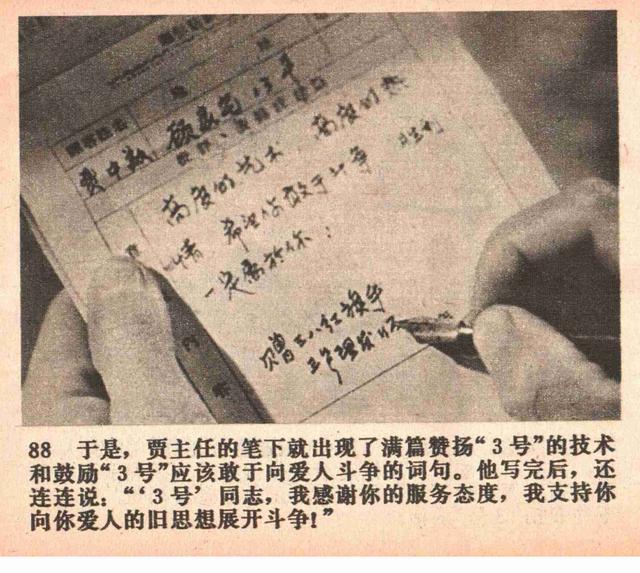 高度的艺术，高度的热
情。希望你敢于斗争 胜利
一定属于你！
赠三八红旗手
88 于是，贾主任的笔下就出现了满篇赞扬“3号”的技术
和鼓励“3号”应该敢于向爱人斗争的词句。他写完后，还
连连说：“‘3号’同志，我感谢你的服务态度，我支持你
向你爱人的旧思想展开斗争！”